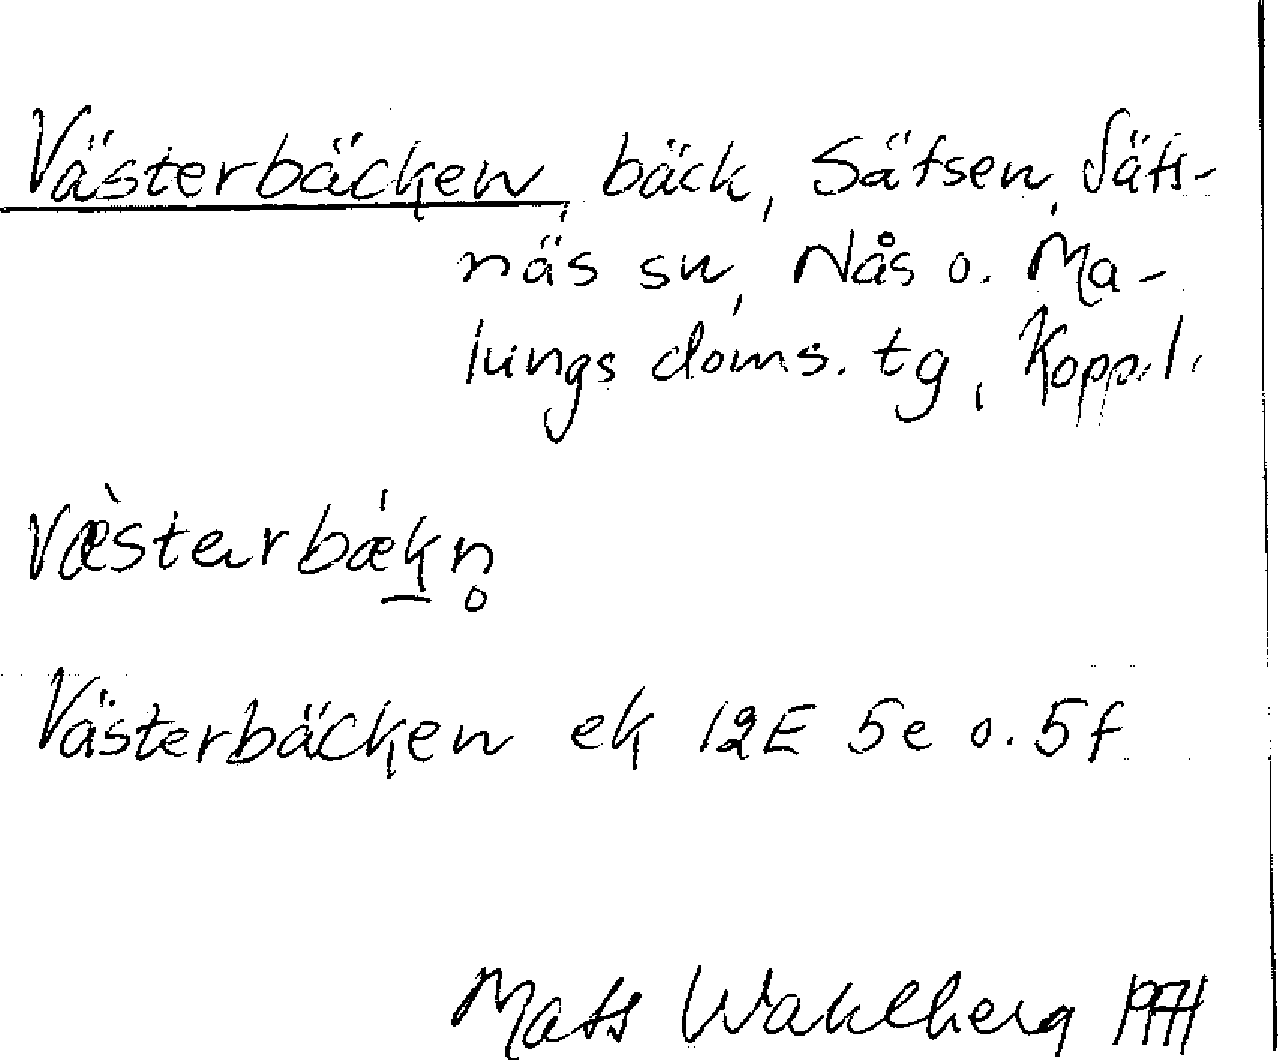 Västerbäcken, bäck, Säfsen, Säfs-
näs sn, Nås o. Ma-
lungs doms. tg, Kopp.l.
væ̀starbæ̀kn̥
Västerbäcken ek 12E 5e o. 5f
Mats Wahlberg